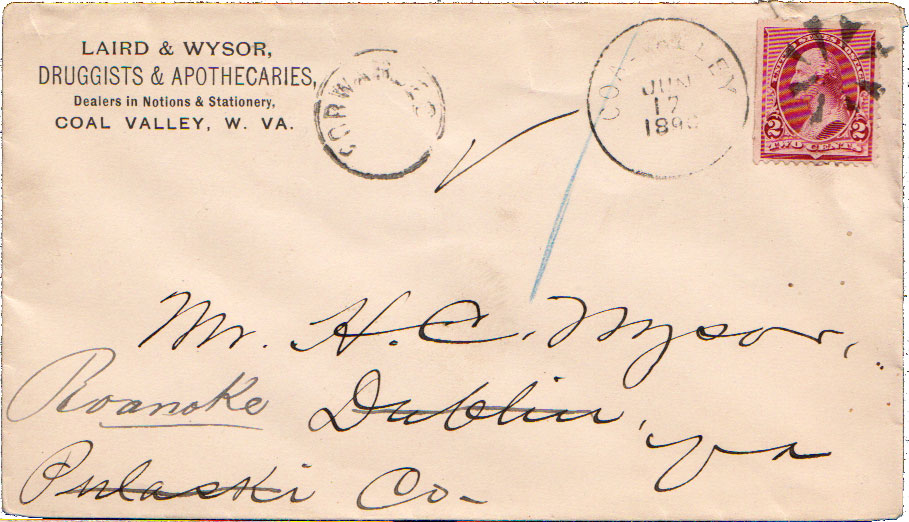 LAIRD & WYSOR,
DRUGGISTS & APOTHECARIES,
Dealers in Notions & Stationery,
COAL VALLEY, W. VA.
FORWARDED
COAL VALLEY
JUN
17
189
UNITED STATES POSTAGE
2 2
TWO CENTS
Mr. H. C. Wysor,
Roanoke Dublin, Va
Pulaski Co-